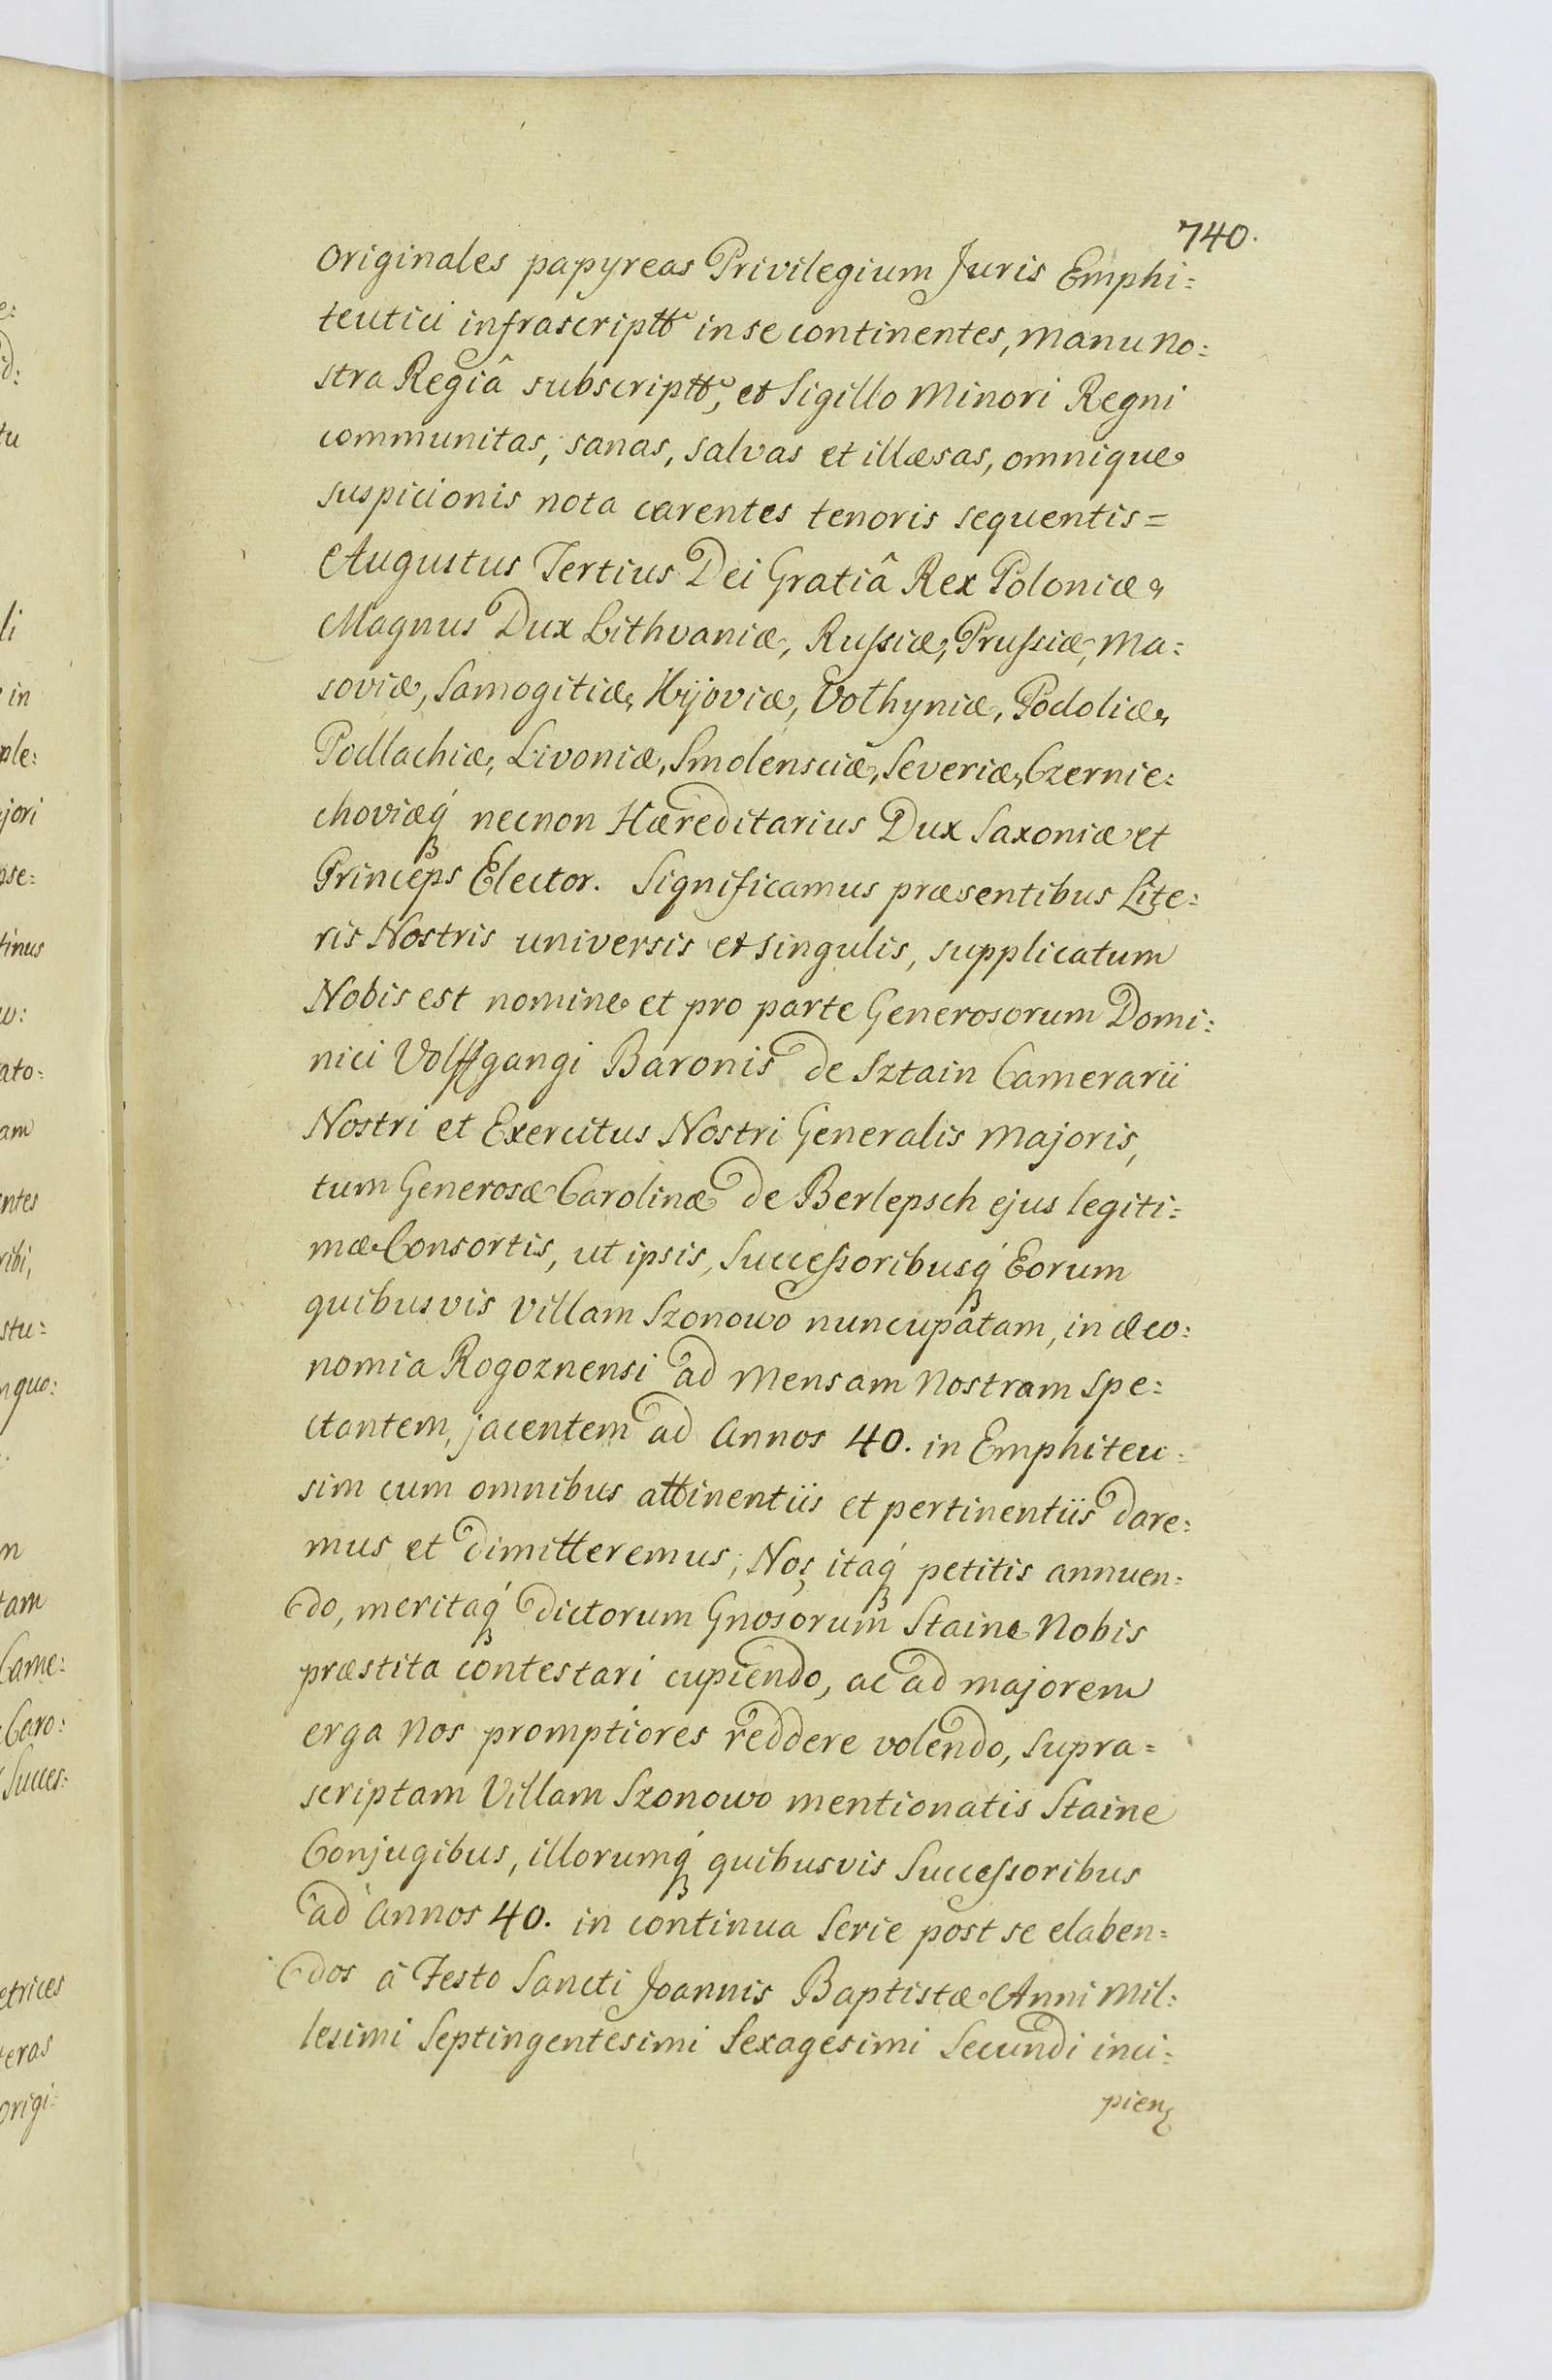 740.
originales papyreas Privilegium Juris Emphi=
teutici infrascriptt inse continentes, manu no=
stra Regiâ subscriptt, et Sigillo Minori Regni
communitas, sanas, salvas et illæsas, omnique
suspicionis nota carentes tenoris sequentis=
Augustus Tertius Dei Gratiâ Rex Poloniæ,
Magnus Dux Lithvaniæ, Russiæ, Prussiæ, Ma=
soviæ, Samogitiæ, Kijoviæ, Volhyniæ, Podoliæ,
Podlachiæ, Livoniæ, Smolensciæ, Severiæ, Czernie=
choviæq́ necnon Hæreditarius Dux Saxoniæ et
Princeps Elector. Significamus præsentibus Lite=
ris Nostris universis et singulis, supplicatum
Nobis est nomine et pro parte Generosorum Domi=
nici Volffgangi Baronis de Sztain Camerarii
Nostri et Exercitus Nostri Generalis Majoris,
tum Generosæ Carolinæ de Berlepsch ejus legiti=
mæ Consortis, ut ipsis, Successoribusq́ Eorum
quibusvis Villam Szonowo nuncupatam, in Œco=
nomia Rogoznensi ad Mensam Nostram spe=
ctantem, jacentem ad Annos 40. in Emphiteu=
sim cum omnibus attinentiis et pertinentiis dare=
mus et dimitteremus, Nos itaq́ petitis annuen=
do, meritaq́ dictorum Gnosorum Staine Nobis
præstita contestari cupiendo, ac ad majorem
erga Nos promptiores reddere volendo, supra=
scriptam Villam Szonowo mentionatis Staine
Conjugibus, illorumq́ quibusvis Successoribus
ad Annos 40. in continua Serie post se elaben=
dos à Festo Sancti Joannis Baptistæ Anni Mil=
lesimi Septingentesimi Sexagesimi Secundi inci=
pien